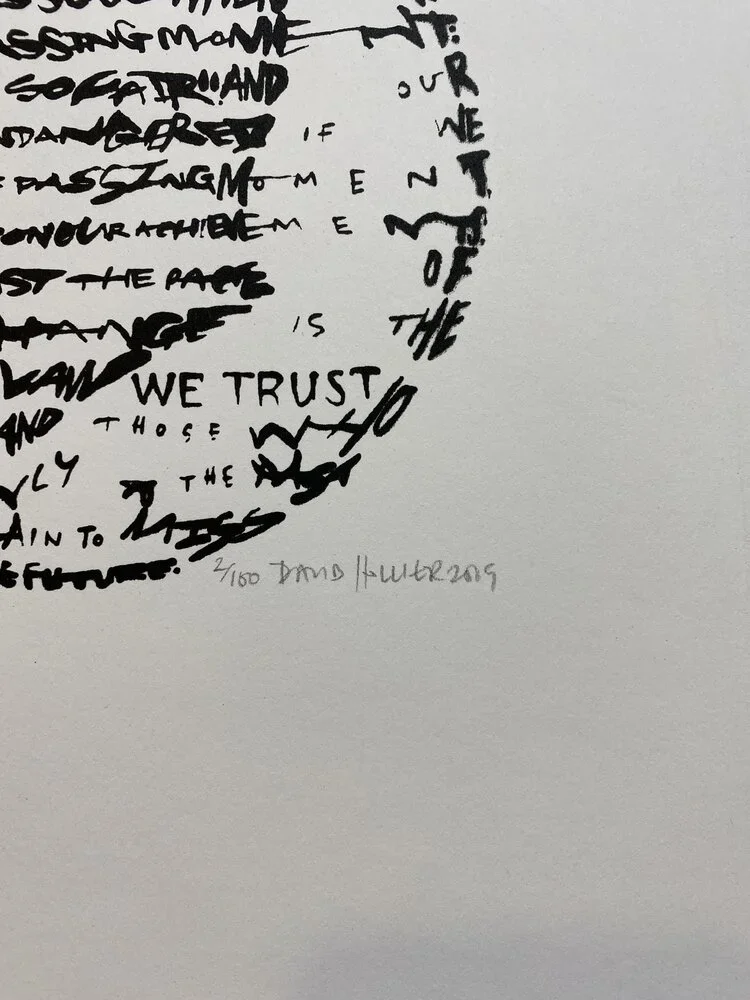 ASSING MOMENT.
SO FAIR AND OUR
NDANGERED IF WE
PASSING MOMENT
ONOUR ACHIEVEMENTS.
ST THE PAGE OF
HANGE IS THE
LAW WE TRUST
AND THOSE WHO
LY AT THE PAST
AIN TO MISS
E FUTURE. 2/100 DAVID HOLLIER 2019